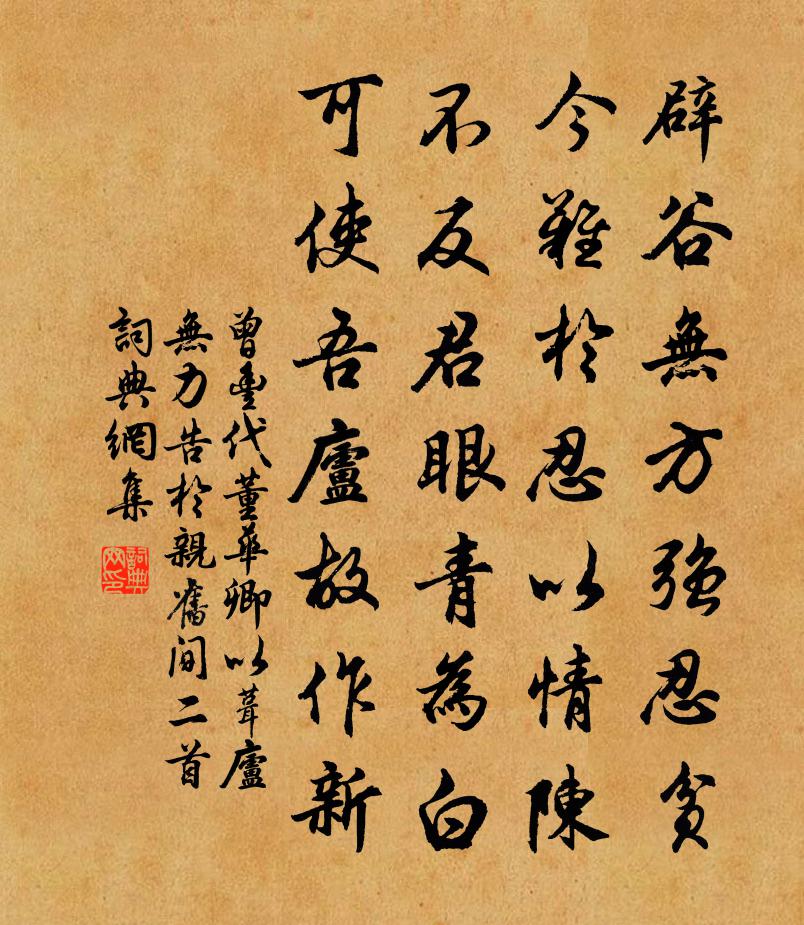 辟谷無方強忍貧
今難於忍以情陳
不反君眼青為白
可使吾廬故作新
曾豐代董華卿以葺廬
無力告於親舊間二首
詞典網集
詞典網印